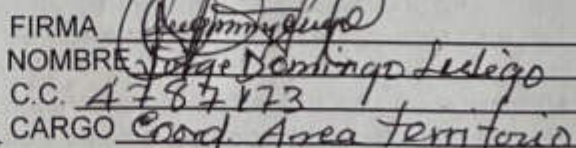 FIRMA
NOMBRE Jorge Domingo
C.C. 4787173
CARGO Coord. Area territorio